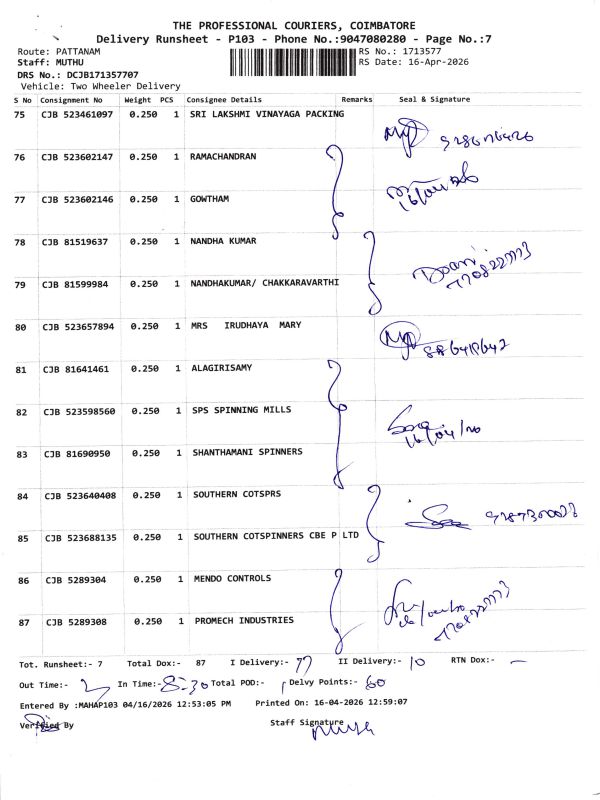 THE PROFESSIONAL COURIERS, COIMBATORE
Delivery Runsheet - P103 - Phone No.:9047080280 - Page No.:7
Route: PATTANAM RS No.: 1713577
Staff: MUTHU RS Date: 16-Apr-2026
DRS No.: DCJB171357707
Vehicle: Two Wheeler Delivery
S No Consignment No Weight PCS Consignee Details Remarks Seal & Signature
75 CJB 523461097 0.250 1 SRI LAKSHMI VINAYAGA PACKING
76 CJB 523602147 0.250 1 RAMACHANDRAN
77 CJB 523602146 0.250 1 GOWTHAM
78 CJB 81519637 0.250 1 NANDHA KUMAR
79 CJB 81599984 0.250 1 NANDHAKUMAR/ CHAKKARAVARTHI
80 CJB 523657894 0.250 1 MRS IRUDHAYA MARY
81 CJB 81641461 0.250 1 ALAGIRISAMY
82 CJB 523598560 0.250 1 SPS SPINNING MILLS
83 CJB 81690950 0.250 1 SHANTHAMANI SPINNERS
84 CJB 523640408 0.250 1 SOUTHERN COTSPRS
85 CJB 523688135 0.250 1 SOUTHERN COTSPINNERS CBE P LTD
86 CJB 5289304 0.250 1 MENDO CONTROLS
87 CJB 5289308 0.250 1 PROMECH INDUSTRIES
Tot. Runsheet:- 7 Total Dox:- 87 I Delivery:- 77 II Delivery:- 10 RTN Dox:- —
Out Time:- In Time:- 8-30 Total POD:- Delvy Points:- 60
Entered By :MAHAP103 04/16/2026 12:53:05 PM Printed On: 16-04-2026 12:59:07
Verified By Staff Signature